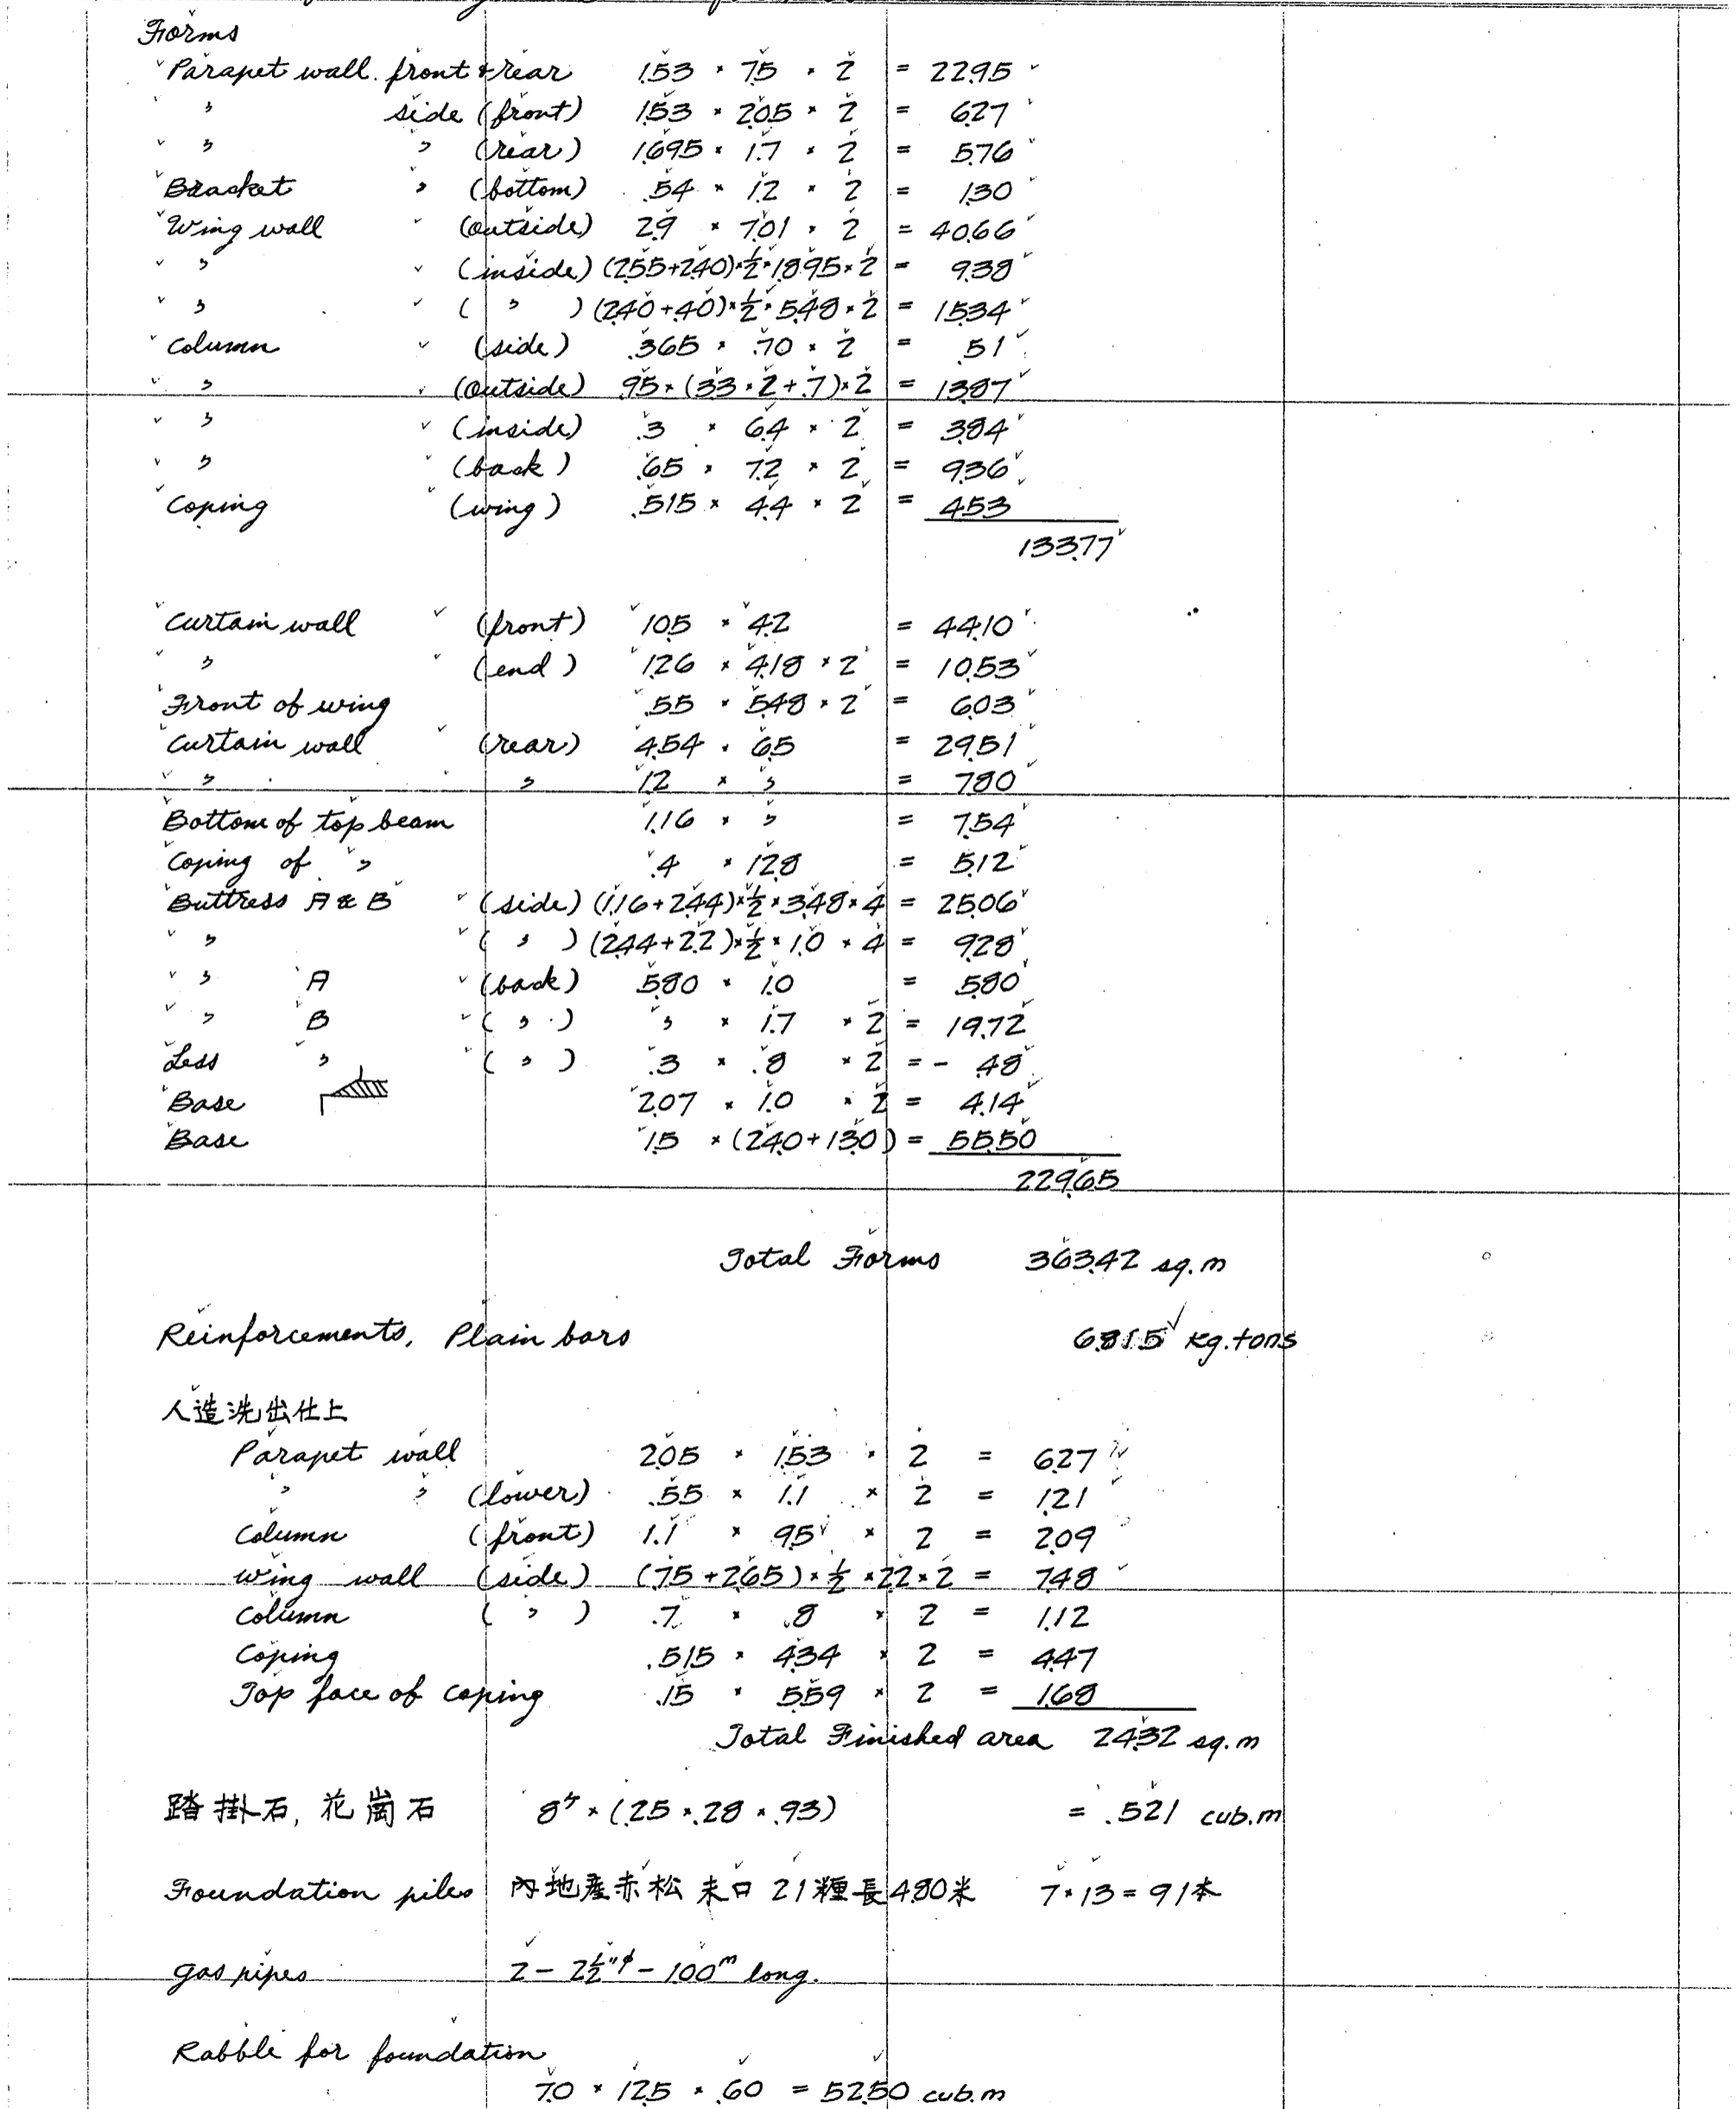 Forms
Parapet wall. front & rear 1.53 × 7.5 × 2 = 22.95
〃 side (front) 1.53 × 2.05 × 2 = 6.27
〃 〃 (rear) 1.695 × 1.7 × 2 = 5.76
Bracket 〃 (bottom) .54 × 1.2 × 2 = 1.30
Wing wall (outside) 2.9 × 7.01 × 2 = 40.66
〃 (inside) (2.55+2.40)×½×1.895×2 = 9.38
〃 ( 〃 ) (2.40+.40)×½×5.48×2 = 15.34
Column (side) .365 × .70 × 2 = .51
〃 (outside) .95×(3.3×2+.7)×2 = 13.87
〃 (inside) .3 × 6.4 × 2 = 3.84
〃 (back) .65 × 7.2 × 2 = 9.36
Coping (wing) .515 × 4.4 × 2 = 4.53
133.77
Curtain wall (front) 10.5 × 4.2 = 44.10
〃 (end) 1.26 × 4.18 × 2 = 10.53
Front of wing .55 × 5.48 × 2 = 6.03
Curtain wall (rear) 4.54 × 6.5 = 29.51
〃 〃 1.2 × 〃 = 7.80
Bottom of top beam 1.16 × 〃 = 7.54
Coping of 〃 .4 × 12.8 = 5.12
Buttress A & B (side) (1.16+2.44)×½×3.48×4 = 25.06
〃 ( 〃 ) (2.44+2.2)×½×1.0×4 = 9.28
〃 A (back) 5.80 × 1.0 = 5.80
〃 B ( 〃 ) 〃 × 1.7 × 2 = 19.72
Less 〃 ( 〃 ) .3 × .8 × 2 = - .48
Base 2.07 × 1.0 × 2 = 4.14
Base 1.5 × (24.0+13.0) = 55.50
229.65
Total Forms 363.42 sq.m
Reinforcements, Plain bars 6.815 kg.tons
人造洗出仕上
Parapet wall 2.05 × 1.53 × 2 = 6.27
〃 〃 (lower) .55 × 1.1 × 2 = 1.21
Column (front) 1.1 × .95 × 2 = 2.09
Wing wall (side) (.75+2.65)×½×2.2×2 = 7.48
Column ( 〃 ) .7 × .8 × 2 = 1.12
Coping .515 × 4.34 × 2 = 4.47
Top face of coping .15 × 5.59 × 2 = 1.68
Total Finished area 24.32 sq.m
踏掛石, 花崗石 8ケ×(.25×.28×.93) = .521 cub.m
Foundation piles 内地産赤松 末口 21糎長 4.80米 7×13 = 91本
gas pipes 2 - 2½"φ - 1.00m long.
Rabble for foundation
7.0 × 12.5 × .60 = 52.50 cub.m